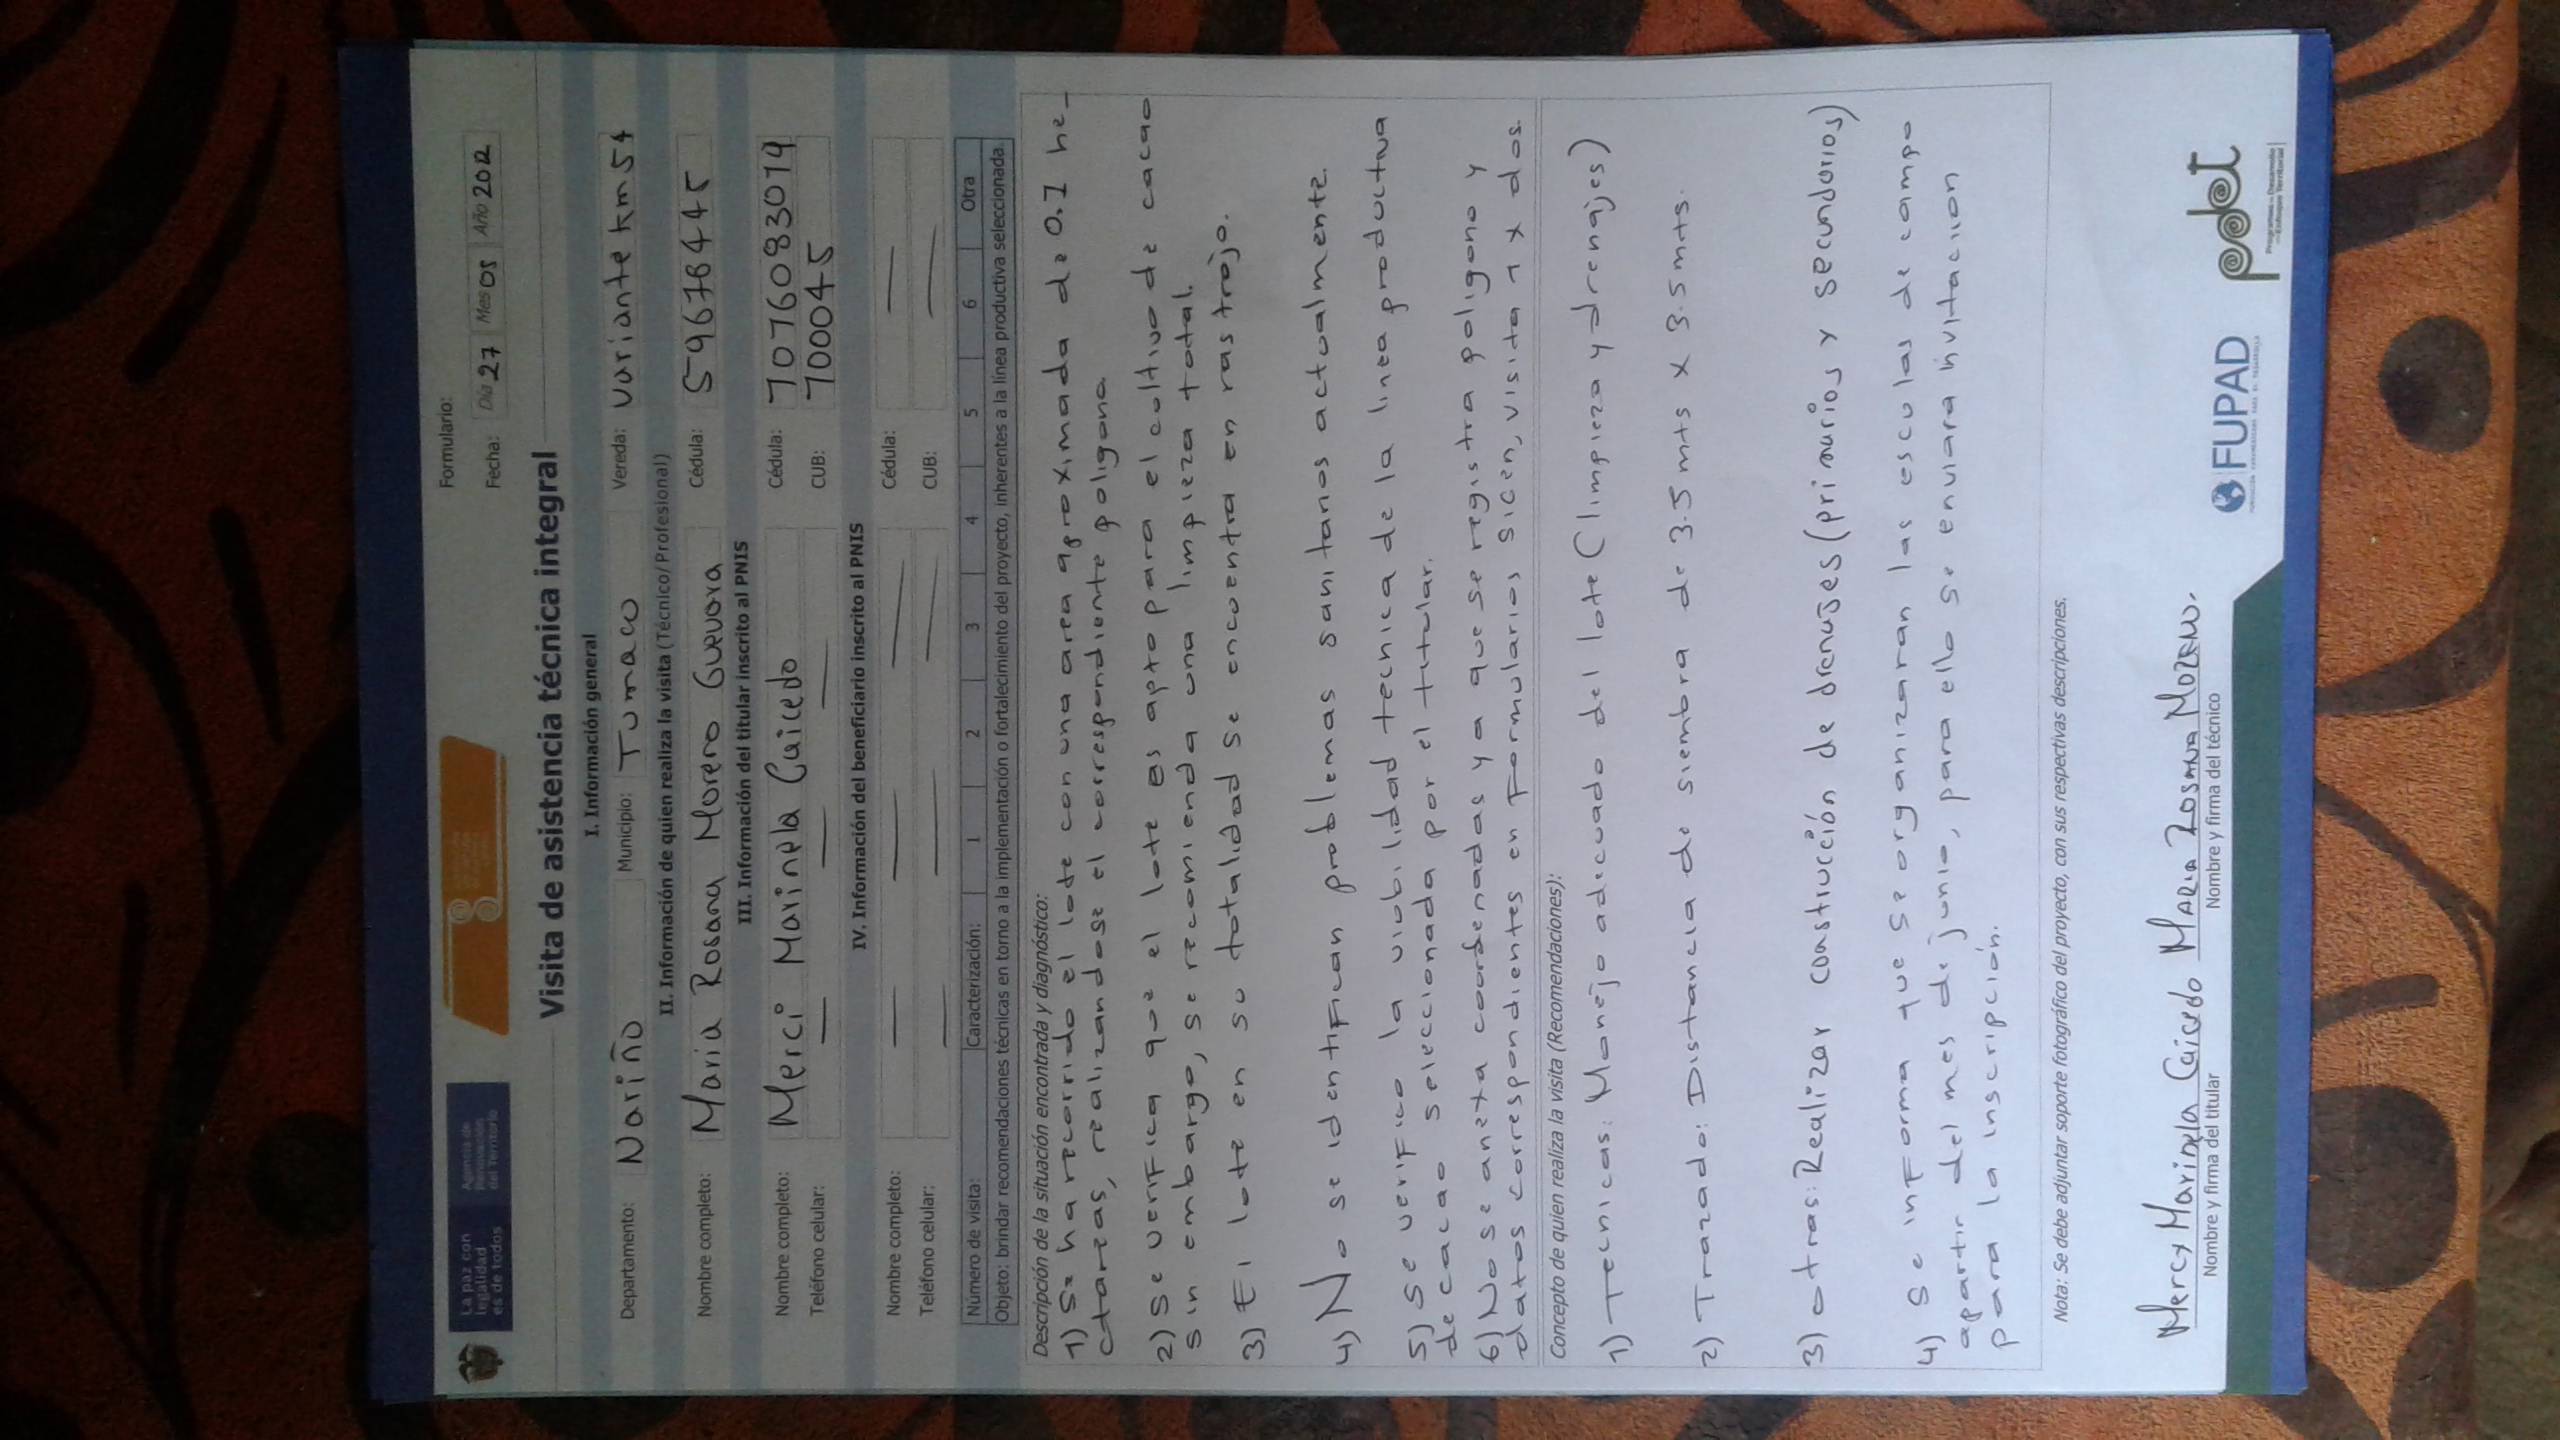 La paz con
legalidad
es de todos
Agencia de
Renovación
del Territorio
Formulario:
Fecha: Día 27 Mes 05 Año 2022
Visita de asistencia técnica integral
I. Información general
Departamento: Nariño Municipio: Tumaco Vereda: Variante km 54
II. Información de quien realiza la visita (Técnico/Profesional)
Nombre completo: Maria Rosana Moreno Guevara Cédula: 59678445
III. Información del titular inscrito al PNIS
Nombre completo: Merci Marinela Caicedo Cédula:
Teléfono celular: — — — CUB: 700045
IV. Información del beneficiario inscrito al PNIS
Nombre completo: — — — Cédula: —
Teléfono celular: — — — CUB: —
Número de visita: Caracterización: 1 2 3 4 5 6 Otra
Objeto: brindar recomendaciones técnicas en torno a la implementación o fortalecimiento del proyecto, inherentes a la línea productiva seleccionada.
Descripción de la situación encontrada y diagnóstico:
1) Se ha recorrido el lote con una area aproximada de 0.1 he-
ctareas, realizandose el correspondiente poligono.
2) Se verifica que el lote es apto para el coltivo de cacao
sin embargo, se recomienda una limpieza total.
3) El lote en su totalidad se encuentra en rastrojo.
4) No se identifican problemas sanitarios actualmente.
5) Se verifico la viabilidad tecnica de la linea productiva
de cacao seleccionada por el titular.
6) No se anexa coordenadas ya que se registra poligono y
datos correspondientes en Formularios sicen, visita 1 x dos.
Concepto de quien realiza la visita (Recomendaciones):
1) Tecnicas: Manejo adecuado del lote (limpieza y drenajes)
2) Trazado: Distancia de siembra de 3.5 mts x 3.5 mts.
3) otras: Realizar construcción de drenajes (primarios y secundarios)
4) Se informa que se organizaran las esculas de campo
apartir del mes de junio, para ello se enviara invitacion
para la inscripción.
Nota: Se debe adjuntar soporte fotográfico del proyecto, con sus respectivas descripciones.
Mercy Marinela Caicedo Maria Rosana Moreno.
Nombre y firma del titular Nombre y firma del técnico
FUPAD
pdet